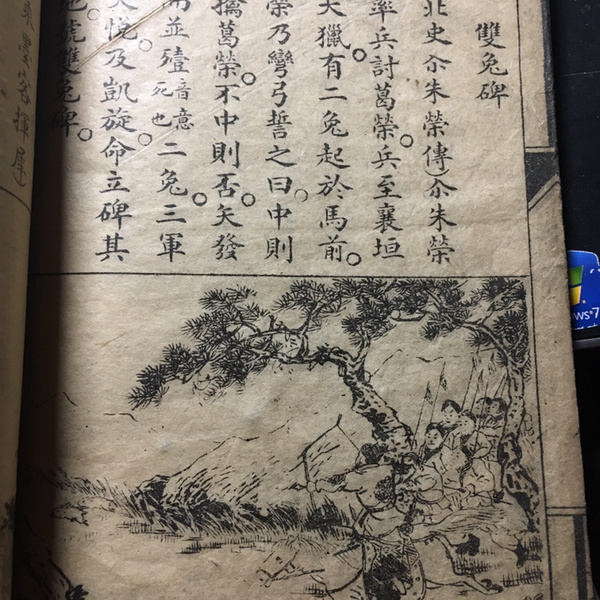 雙兔碑
北史尒朱榮傳)尒朱榮
率兵討葛榮。兵至襄垣
大獵。有二兔起於馬前。
榮乃彎弓誓之曰。中則
擒葛榮。不中則否。矢發
而並殪音意死也。二兔。三軍
大悅。及凱旋命立碑其
地。號雙兔碑。
乘墨客揮犀)
ws®7